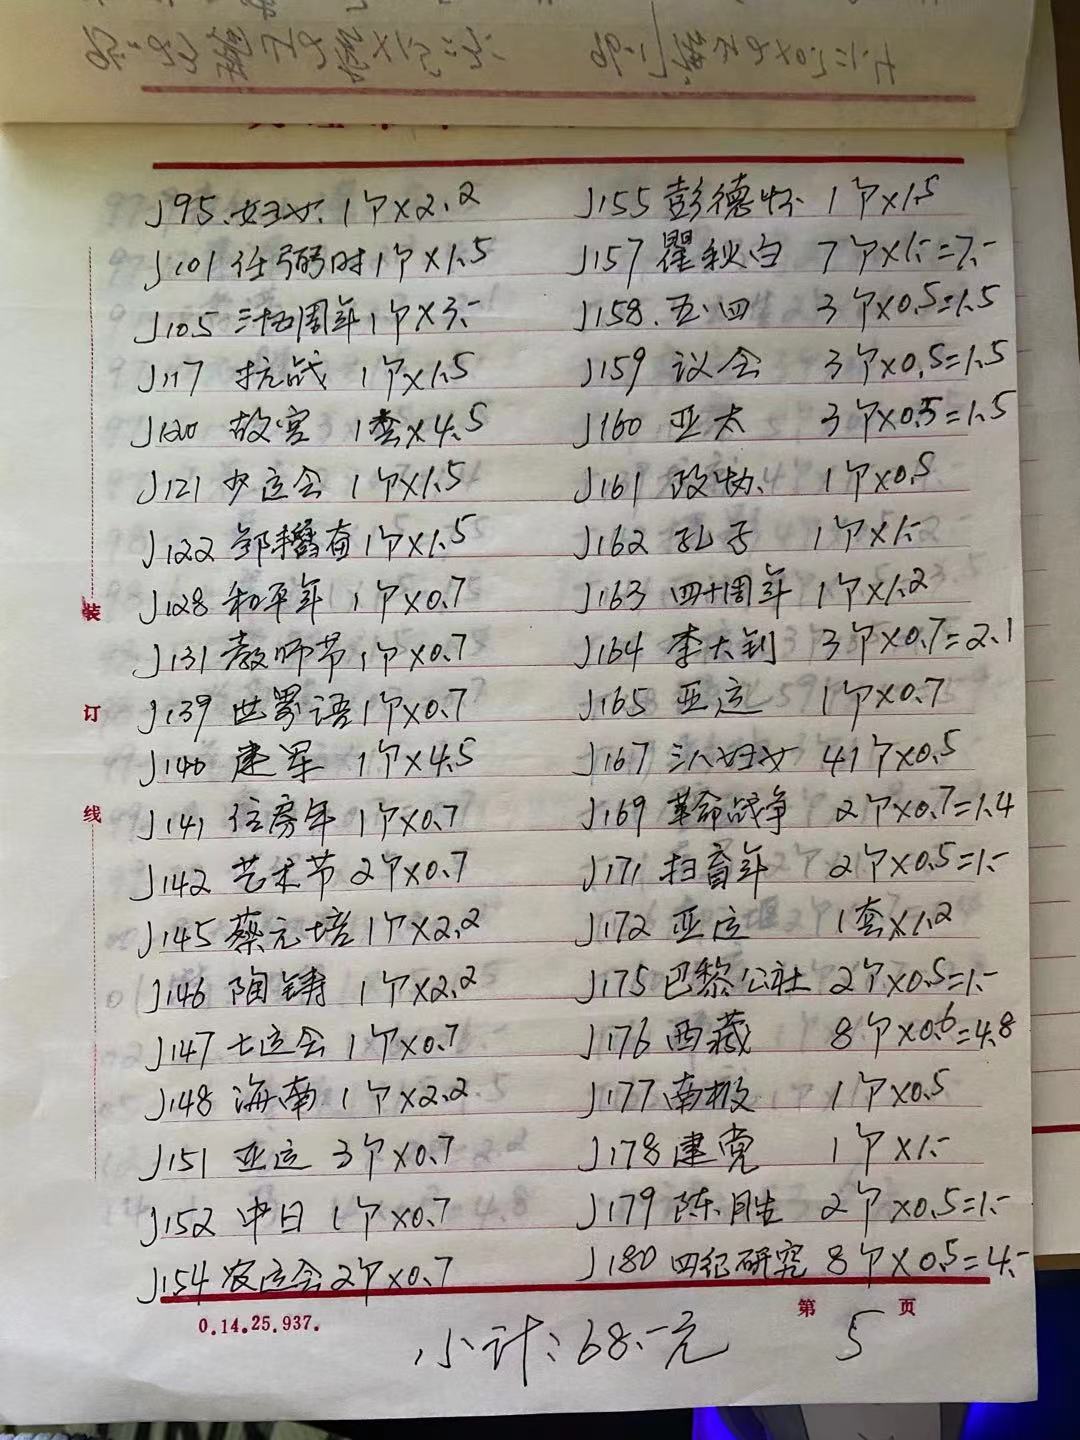 J95.妇女.1个×2.2
J101任弼时1个×1.5
J105三十五周年1个×3.-
J117 抗战 1个×1.5
J120 故宫 1套×4.5
J121 少运会 1个×1.5
J122 邹韬奋1个×1.5
J128 和平年 1个×0.7
J131 教师节 1个×0.7
J139 世界语1个×0.7
J140 建军 1个×4.5
J141 住房年 1个×0.7
J142 艺术节 2个×0.7
J145 蔡元培1个×2.2
J146 陶铸 1个×2.2
J147 七运会 1个×0.7
J148 海南 1个×2.2
J151 亚运 3个×0.7
J152 中日 1个×0.7
J154 农运会2个×0.7
J155 彭德怀 1个×1.5
J157 瞿秋白 7个×1.-=7.-
J158.五·四 3个×0.5=1.5
J159 议会 3个×0.5=1.5
J160 亚太 3个×0.5=1.5
J161 政协 1个×0.5
J162 孔子 1个×1.-
J163 四十周年 1个×1.2
J164 李大钊 3个×0.7=2.1
J165 亚运 1个×0.7
J167 三八妇女 41个×0.5
J169 革命战争 2个×0.7=1.4
J171 扫盲年 2个×0.5=1.-
J172 亚运 1套×1.2
J175 巴黎公社 2个×0.5=1.-
J176 西藏 8个×0.6=4.8
J177 南极 1个×0.5
J178 建党 1个×1.-
J179 陈胜 2个×0.5=1.-
J180 四纪研究 8个×0.5=4.-
装
订
线
0.14.25.937.
第 5 页
小计:68.-元